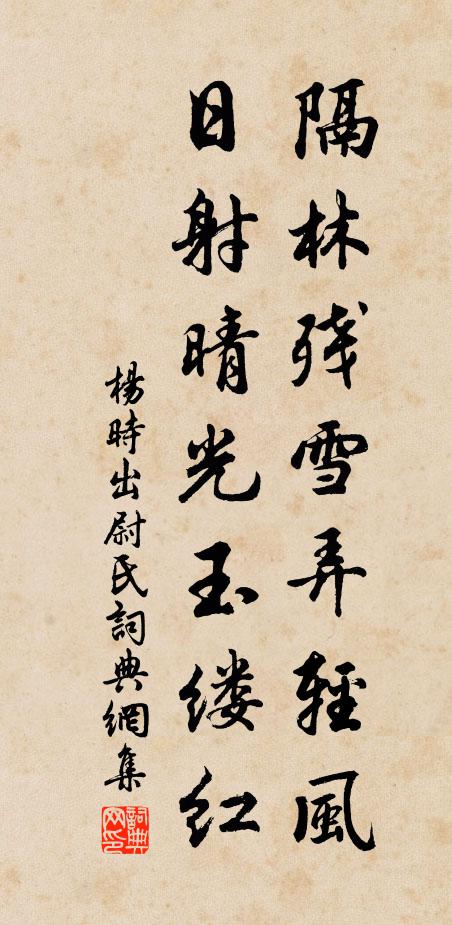 隔林残雪弄輕風
日射晴光玉缕红
楊時出尉氏詞典網集
詞典网印